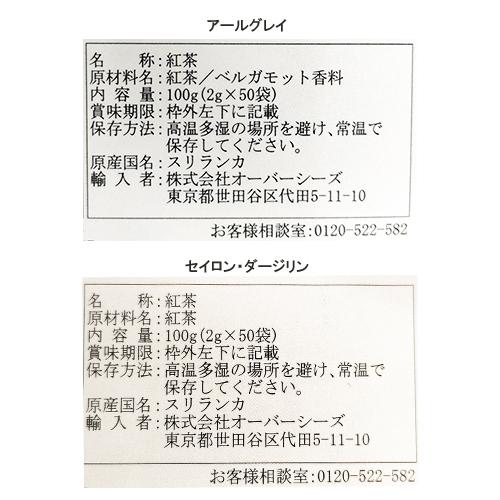 アールグレイ
名　　称：紅茶
原材料名：紅茶／ベルガモット香料
内 容 量：100g(2g×50袋)
賞味期限：枠外左下に記載
保存方法：高温多湿の場所を避け、常温で
保存してください。
原産国名：スリランカ
輸 入 者：株式会社オーバーシーズ
東京都世田谷区代田5-11-10
お客様相談室：0120-522-582
セイロン・ダージリン
名　　称：紅茶
原材料名：紅茶
内 容 量：100g(2g×50袋)
賞味期限：枠外左下に記載
保存方法：高温多湿の場所を避け、常温で
保存してください。
原産国名：スリランカ
輸 入 者：株式会社オーバーシーズ
東京都世田谷区代田5-11-10
お客様相談室：0120-522-582